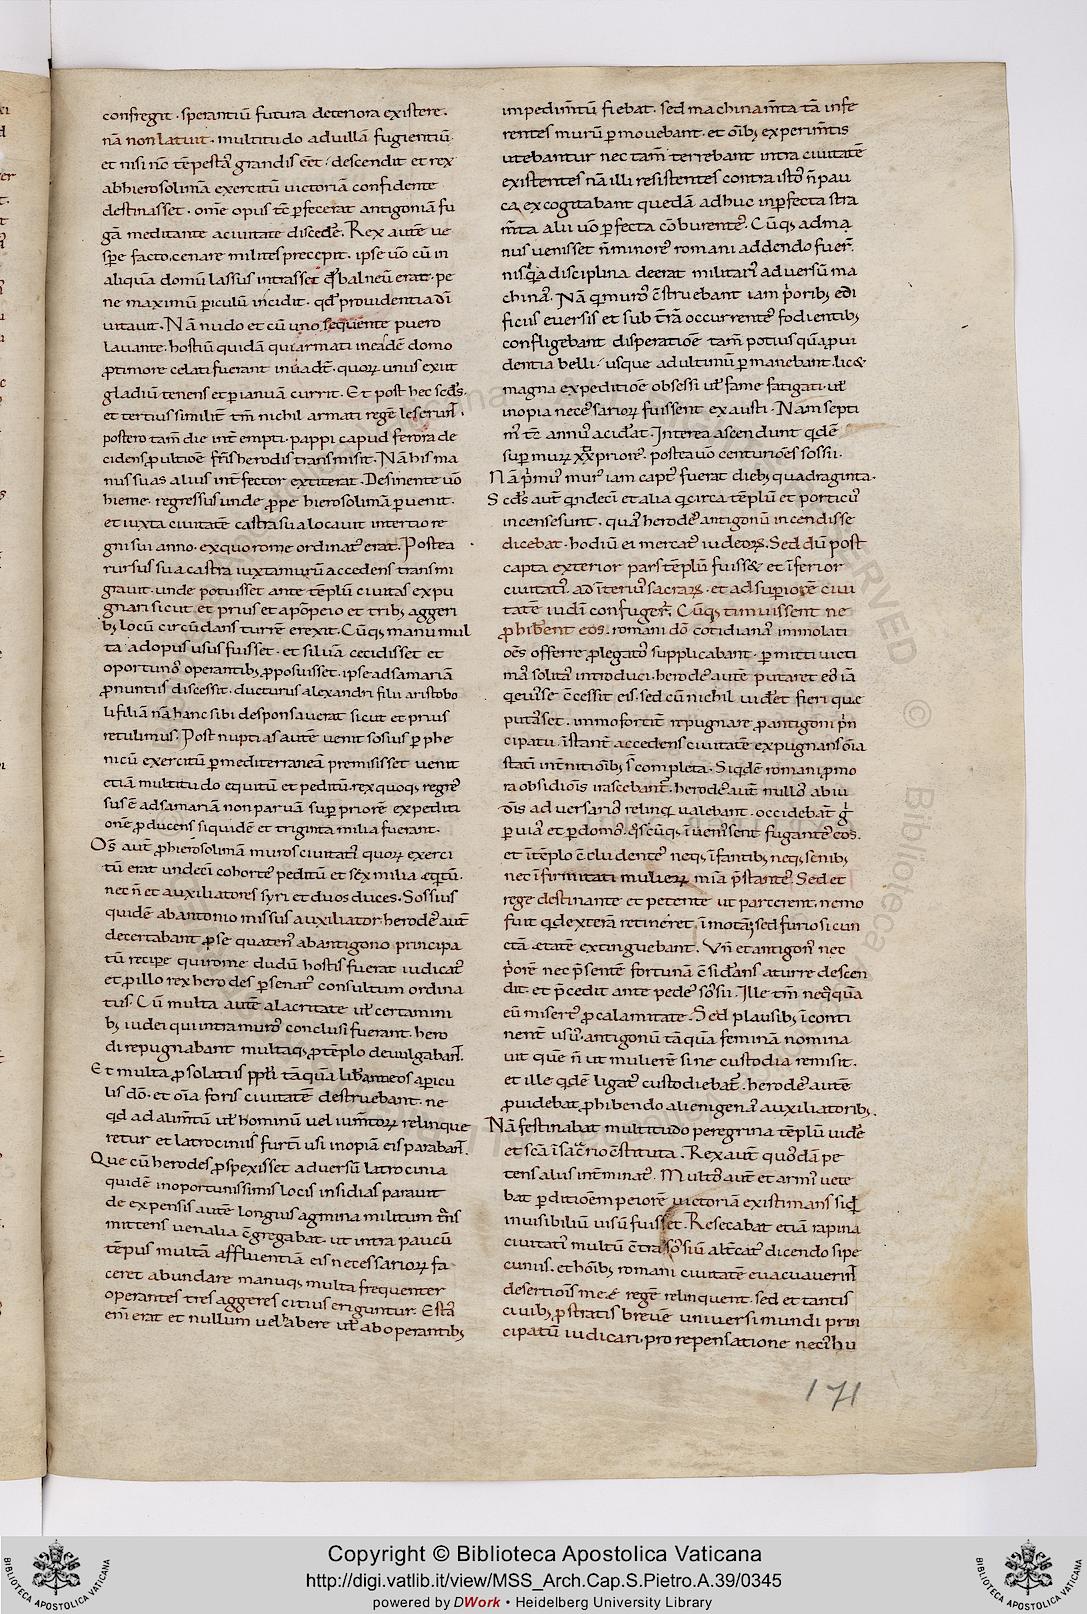 confregit · sperantiū futura deteriora existere ·
nā non latuit · multitudo ad uillā fugientiū ·
et nisi noc̄ tēpestaſ grandis eēt · descendit et rex
ab hierosolimā exercitū uictoriā confidente
destinasset · om̄e opus tc̄ ꝑfecerat antigoniā fu
gā meditante a ciuitate discedē · Rex autē ue
sꝑe facto cenare milites precepit · ipse uō cū in
aliquā domū lassus intrasset
ne maximū ꝑiculū incidit · qđ prouidentia dī
uitauit · Nā nudo et cū uno sequente puero
lauante · hostiū quidā qui armati in eadē domo
ꝓ timore celati fuerant inuadē · quoꝝ unus exiit
gladiū tenens et ꝑ ianuā currit · Et post hec scđs
et tertius similit̄ tm̄ nichil armati regē leserunt ·
postero tam̄ die int̄empti · pappi capud ferora de
cidens ꝓ ultioē fr̄is herodis transmisit · Nā his ma
nus suas alius int̄fector extiterat · Desinente uō
hieme · regressus unde ꝓpe hierosolimā ꝑuenit ·
et iuxta ciuitatē castra sua locauit in tertio re
gni sui anno · ex quo rome ordinatꝰ erat · Postea
rursus sua castra iuxta murū accedens transmi
grauit · unde potuisset ante tēplū ciuitaſ expu
gnari sicut et prius et a pōpeio et tribꝫ aggeri
bꝫ locū circūdans turrē erexit · Cūqꝫ manu mul
ta ad opus usus fuisset · et siluā cecidisset et
oportunoſ operantibꝫ ꝓposuisset · ipse ad samariā
ꝓ nuptiis discessit · ducturus alexandri filii aristobo
li filiā nā hanc sibi desponsauerat sicut et prius
retulimus · Post nuptias autē uenit sosius ꝑ phe
nicū exercitū ꝑ mediterraneā premisisset uenit
etiā multitudo equitū et peditū · rex quoqꝫ regreſ
sus ē ad samariā non paruā suꝑ priorē expediti
onē ꝓducens siquidē et triginta milia fuerant ·
Oēs aut̄ ꝓ hierosolimā muros ciuitatiſ quoꝝ exerci
tū erat undeci cohorteſ peditū et sex milia eqtū ·
nec n̄ et auxiliatores syri et duos duces · Sossius
quidē ab antonio missus auxiliator · herodeſ aut̄
decertabant ꝓ se quatenꝰ ab antigono principa
tū reciꝑe qui rome dudū hostis fuerat iudicatꝰ
et ꝓ illo rex herodes ꝑ senatꝰ consultum ordina
tus · Cū multa autē alacritate ut certamini
bꝫ iudei qui intra muroſ conclusi fuerant · hero
di repugnabant multaqꝫ ꝓ tēplo deuulgabant ·
Et multa ꝓ solatiis ppli tāquā liberante os a ꝑicu
lis dō · et oīa foris ciuitatē destruebant · ne
qđ ad alim̄tū ut hominū uel iumtoꝝ relinque
retur et latrociniis furtī usi inopiā eis parabant ·
Que cū herodes ꝓspexisset aduersū latrocinia
quidē inoportunissimis locis insidias parauit
de expensis autē longius agmina militum
mittens uenalia c̄gregabat · ut intra paucū
tēpus multā affluentiā eis necessarioꝝ fa
ceret abundare manuqꝫ multa frequenter
operantes tres aggeres citius eriguntur · Estaſ
eīn erat et nullum uel habere ut ab operantibꝫ
impedim̄tū fiebat · sed machinam̄ta tā infe
rentes murū ꝑmouebant · et oībꝫ experim̄tis
utebantur nec tam̄ terrebant intra ciuitatē
existentes nā illi resistentes contra istoſ n̄ pau
ca excogitabant quedā adhuc inꝑfecta stra
m̄ta alii uō ꝑfecta cōburenteſ · Cūqꝫ ad ma
nus uenisset n̄ minoreſ romani addendo fuer̄
nisi qa disciplina deerat militariſ aduersū ma
chinaſ · Nā q muroſ c̄struebant iam p̄oribꝫ edi
ficiis euersis et sub t̄rā occurrenteſ fodientibꝫ
confligebant disperatioē tam̄ potius quā pui
dentia belli · usque ad ultimū ꝑmanebant · lic&
magna expeditioē obsessi ut fame fatigati · ut
inopia necessarioꝝ fuissent exausti · Nam septi
mꝰ tc̄ annus acidat · Interea ascendunt qdē
suꝑ muꝝ xx priores · postea uō centurioēs sossii ·
Nā p̄mus murꝰ iam captꝰ fuerat diebꝫ quadraginta ·
Scđs aut̄ qndeci et alia q circa tēplū et porticuſ
incense sunt · quaſ herodeſ antigonū incendisse
dicebat · hodiū ei mercatꝰ iudeoꝝ · Sed dū post
capta exterior pars tēplū fuiss& et īferior
ciuitatiſ · ad īteriuſ sacraꝝ · et ad suꝑiorē ciui
tatē iudī confugerͭ · Cūqꝫ timuissent ne
ꝓhibent eos · romani dō cotidianaſ immolati
oēs offerre ꝓ legatoſ supplicabant · ꝑmitti uicti
maſ solitaſ introduci · herodeſ autē putaret eoſ iā
c̄cessit eis · sed cū nichil uidet fieri que
putasset · immo fortit̄ repugnare ꝓ antigoni p̄n
cipatu · īstant̄ accedens ciuitatē expugnans oīa
stati int̄nitiōibꝫ s̄ completa · Siqdē romani p̄ mo
ra obsidiois irascebant̄ · herodeſ aut̄ nulloſ ab iu
dīs aduersarioſ relinq ualebant · occidebant̄ gͥ
ꝑ uiaſ et ꝑ domoſ · qſcūqꝫ īuenissent fuganteſ eos ·
et ī tēplo c̄cludenteſ neqꝫ īfantibꝫ neqꝫ senibꝫ
nec īfirmitati mulieꝝ mīa p̄stanteſ · Sed et
rege destinante et petente ut parcerent · nemo
fuit qđ exterā retineret · īmotā sed furiosi cun
ctā etatē extinguebant · Vn̄ et antigonꝰ nec
p̄orē nec p̄sentē fortunā c̄sidans a turre descen
dit · et p̄cedit ante pedeſ sosii · Ille tm̄ neqquā
eū misereſ ꝓ calamitate · Sed plausibꝫ īconti
nent̄ usuſ · antigonū tāquā feminā nomina
uit que n̄ ut mulierē sine custodia remisit ·
et ille qdē ligatꝰ custodiebat̄ · herodeſ autē
ꝓuidebat ꝓhibendo alienigenaſ auxiliatoribꝫ ·
Nā festinabat multitudo peregrina tēplū uidē
et scā ī sacrio c̄stituta · Rex aut̄ quosdā pe
tens alius int̄minatꝰ · Multoſ aut̄ et armiſ uete
bat ꝑditioēm peiorē uictoriā existimans siq
inuisibiliū uisū fuisset · Resecabat etiā rapina
ciuitatiſ multū c̄tra sosiū alt̄catꝰ dicendo si pe
cuniis · et hōibꝫ romani ciuitatē euacuauerint
desertiois me · ē regē relinquent · sed et tantis
ciuibꝫ ꝓstratis breue uniuersi mundi prin
cipatū iudicari · pro repensatione
171
Copyright © Biblioteca Apostolica Vaticana
http://digi.vatlib.it/view/MSS_Arch.Cap.S.Pietro.A.39/0345
powered by DWork • Heidelberg University Library